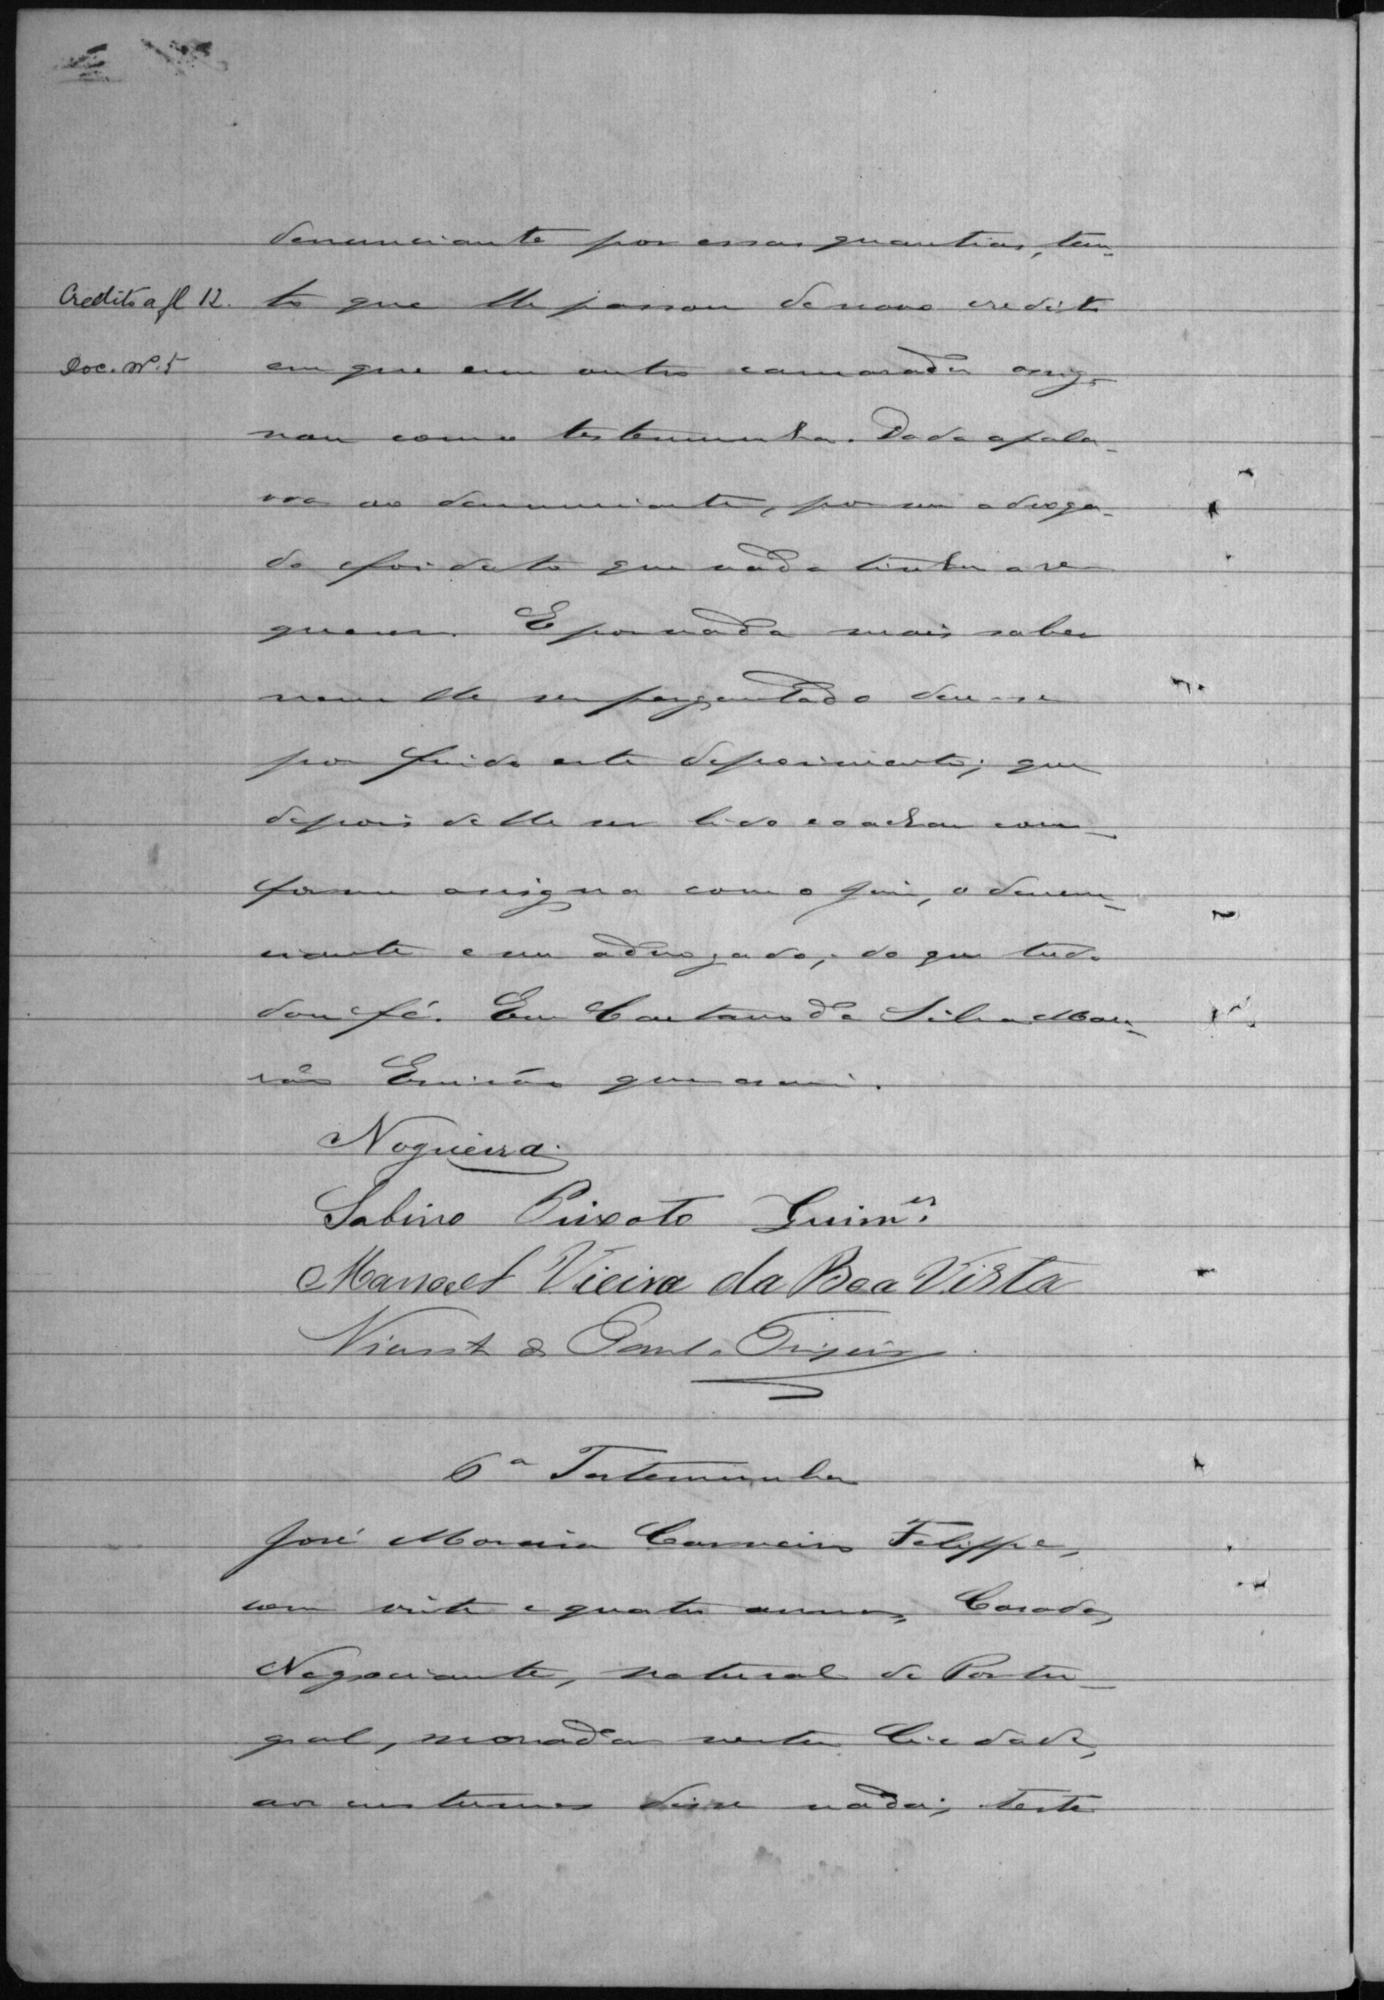 denunciante por essas quantias, tan-
Credito a fl 12. to que lhe passou de novo credito
Doc. nº 5 em que um outro camarada assig-
nou como testemunha. Dada a pala-
vra ao denunciante, por seu advoga-
do foi dito que nada tinha a re
querer. E por nada mais saber
nem lhe ser perguntado deu-se
por findo este depoimento; que
depois de lhe ser lido e o achar con-
forme assigna com o juiz, o denun-
ciante e seu advogado, do que tudo
dou fé. Eu Caetano da Silva Mou-
rão Escrivão que escrevi.
Nogueira.
Sabino Peixoto Guim.es
Manoel Vieira da Boa Vista
Vicente de Paula Teixeira
6ª Testemunha
José Moreira Carneiro Felippe,
com vinte e quatro annos, Casado,
Negociante, natural de Portu-
gal, morador nesta Cidade,
aos custumes disse nada; teste